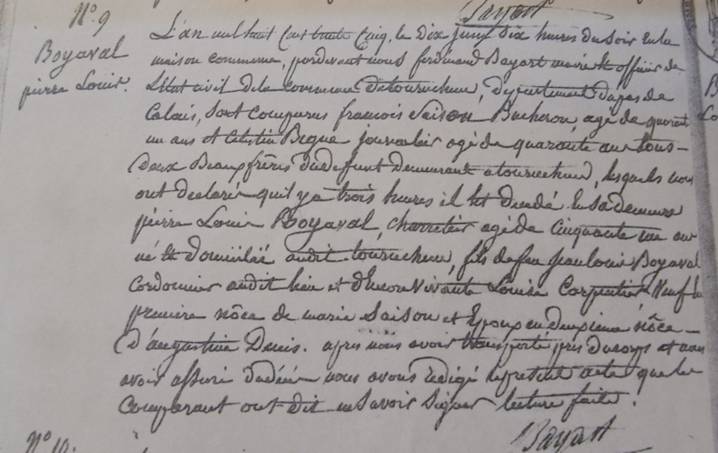 Bayart
N.o 9
Boyaval
pierre Louis.
L'an mil huit Cent trente Cinq, le Dix juin Dix heures Du Soir en la
maison commune, pardevant nous ferdinand Bayart maire et officier de
L'état civil de la commune de tournehem, Département Dupas de
Calais, Sont Comparus francois Saison Bucheron, agé de quarante
un ans et Celestin Begue journalier agé de quarante ans tous
Deux Beaux frères Du defunt Demeurant a tournehem, lesquels nous
ont declaré qu'il y a trois heures il est decédé En sa demeure
pierre Louis Boyaval, charretier agé de Cinquante un an
né et Domicilié audit tournehem, fils de feu jean louis Boyaval
Cordonnier audit lieu et d'Encore Vivante Louise Carpentier, Veuf en
première nôce de marie Saison et Epoux en deuxième nôce
D'augustine Denis. apres nous avoir transporté près du corps et nous
avoir assuré du décés nous avons rédigé le present acte que les
Comparant ont dit ne Savoir Signer lecture faite.
Bayart
N.o 10.